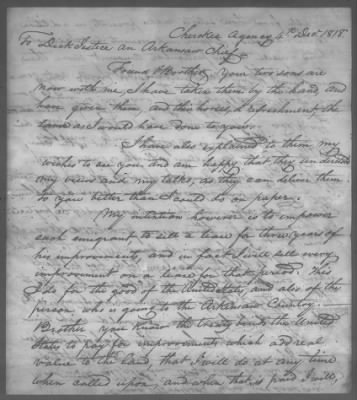 Cherokee Agency 4th Decr 1818
To Dick Justice an Arkansaw Chief
Friend & Brother, Your two sons are
now with me, I have taken them by the hand, and
have given them, and this horses a refreshment, the
same as I would have done to you.
I have also explained to them my
wishes to see you and am happy that they understand
my views and my talks, as they can deliver them
to you better than I could do on paper.
My intention however is to impower
each emigrant to sell a lease for three years of
his improvements, and in fact I will sell every
improvement on a lease for that period. This
I do for the good of the United States, and also of the
person who is going to the Arkansaw Country.
Brother you know the treaty binds the United
States to pay for improvements which add real
value to the land, that I will do at any time
when called upon, and when that is paid I will